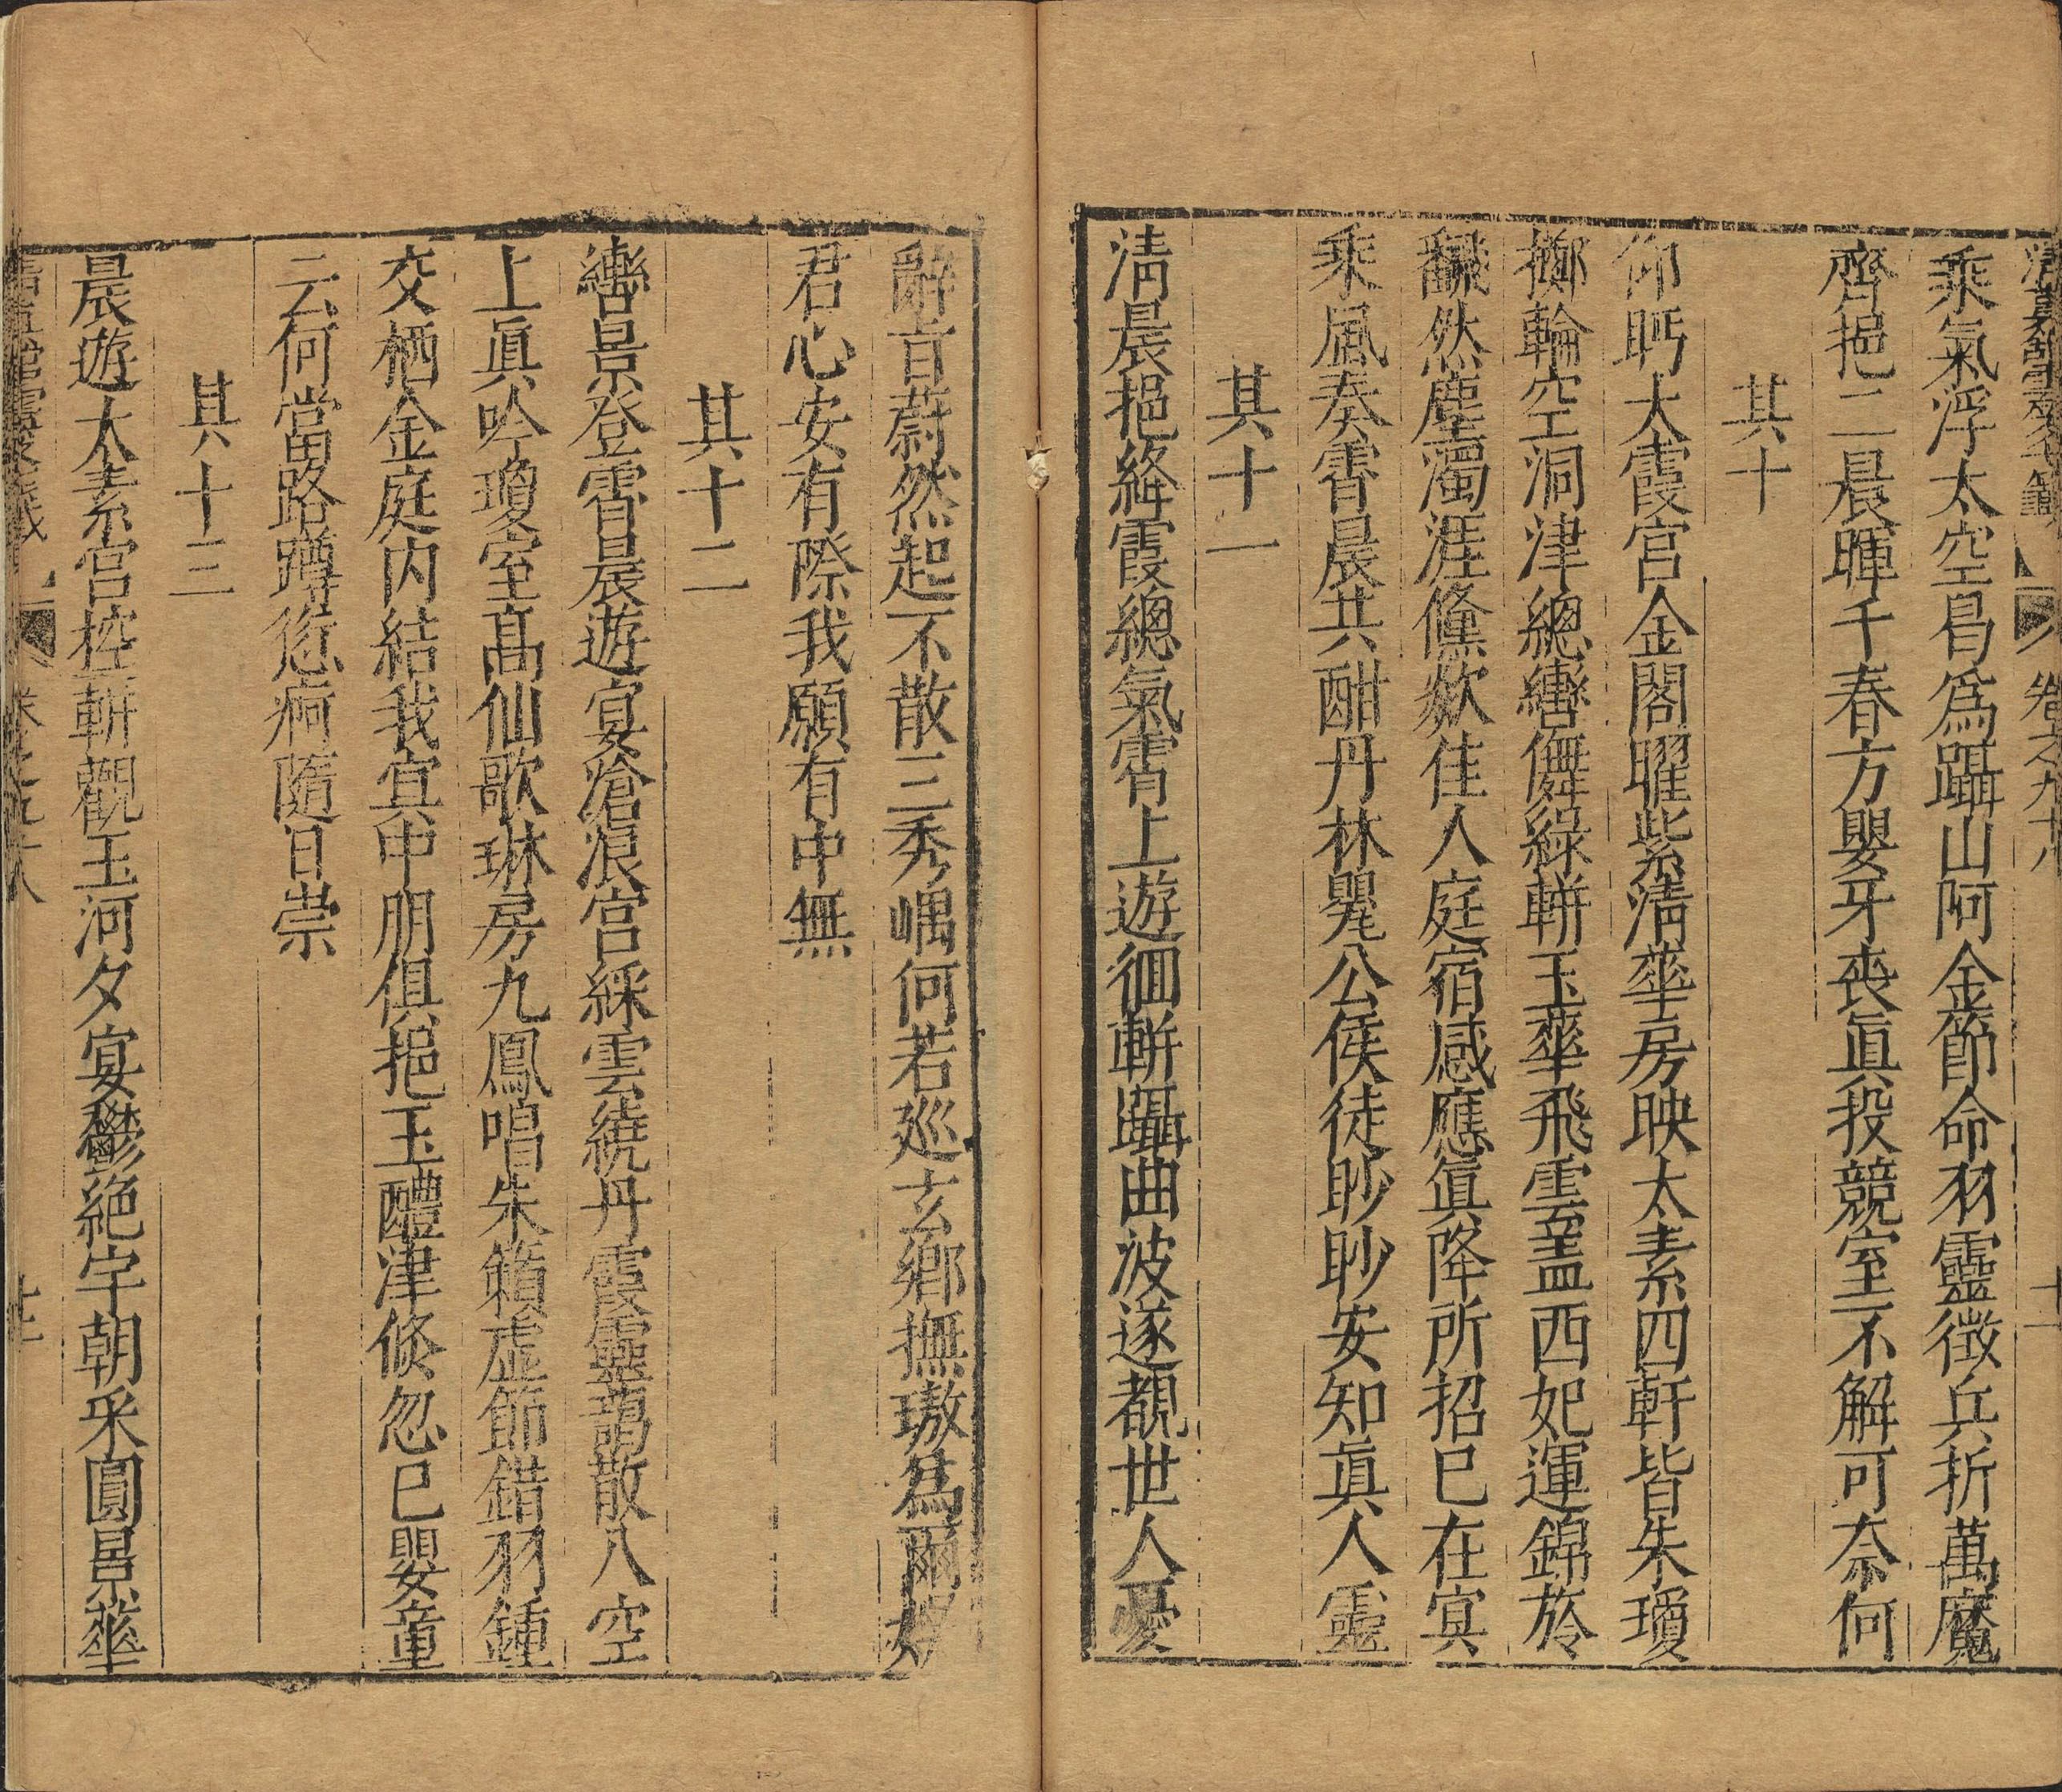 卷之九十八 十一
乘氣浮太空曷爲躡山阿金節命羽靈徵兵折萬魔
齊挹二晨暉千春方嬰牙丧眞投競室不解可奈何
其十
仰眄太霞宮金閣曜紫淸華房映太素四軒皆朱瓊
擲輪空洞津總轡儛綠軿玉華飛雲盖西妃運錦旍
飜然塵濁涯儵欻佳人庭宿感應眞降所招已在㝠
乘風奏霄晨共酣丹林罍公侯徒眇眇安知眞人靈
其十一
淸晨挹絳霞總氣霄上遊徊軿躡曲波遂覩世人憂
辭旨蔚然起不散三秀嵎何若巡玄鄉撫璈爲爾娱
君心安有際我願有中無
其十二
轡景登霄晨遊宴滄浪宮綵雲繞丹霞靈藹散八空
上眞吟瓊室高仙歌琳房九鳳唱朱籟虛節錯羽鍾
交栖金庭内結我㝠中朋俱挹玉醴津倐忽已嬰童
云何當路蹲愆痾隨日崇
其十三
晨遊太素宮控軿觀玉河夕宴鬱絕宇朝采圓景華